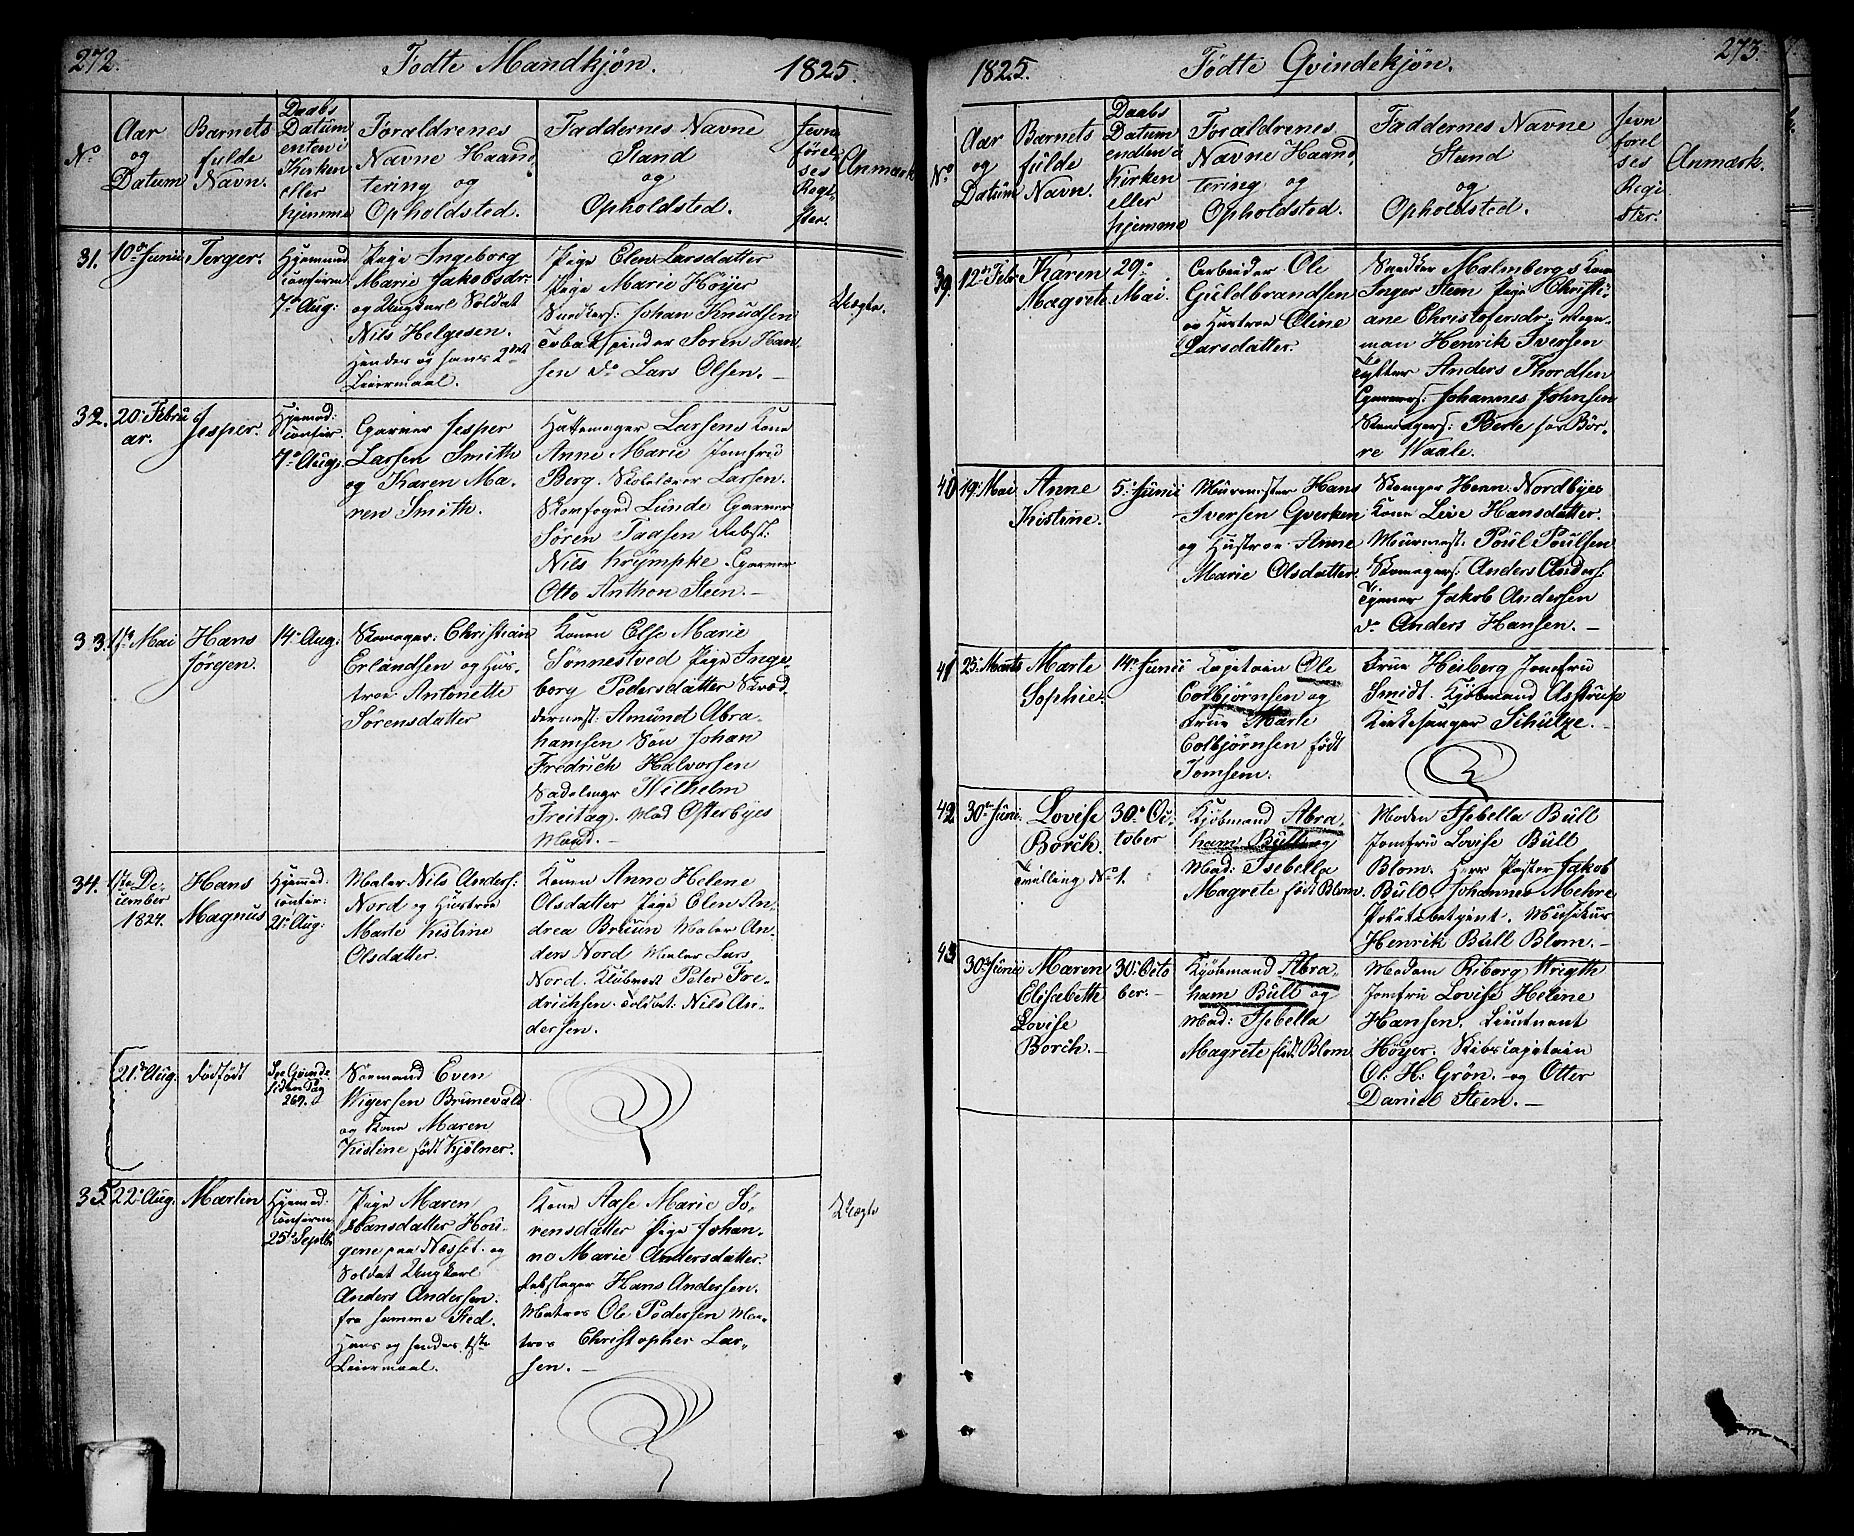 272.
Fødte Mandkjøn.
1825.
No
Aar
og
Datum
Barnets
fulde
Navn.
Daabs
Datum
enten i
Kirken
eller
hjemme
Forældrenes
Navne Haand
tering og
Opholdsted.
Faddernes Navne
Stand
og
Opholdsted.
Jevn
førel
ses
Regi-
ster.
Anmærk
31.
10de Junii
Terger.
Hjemmed
confirm
7de Aug:
Pige Ingeborg
Marie Jakobsdr
og Ungkarl Soldat
Nils Helgesen.
Hendes og hans 2det
Leiermaal.
Pige Elen Larsdatter
Pige Marie Höyer
Snedkers: Johan Knudsen
Tobakspinder Sören Han-
sen do Lars Olsen.—
Uægte.
32.
20de Febru
ar.
Jesper.
Hjemmed:
confir.
7de Aug:
Garver Jesper
Larsen Smith
og Karen Ma-
ren Smith.
Hattemager Larsens Kone
Anne Marie Jomfru
Berg. Skolelærer Larsen.
Skomfoged Lunde Garver
Sören Faasen Rebsl:
Nils Krympke. Garver
Otto Anthon Steen.—
33.
1ste Mai
Hans
Jörgen.
14de Aug:
Skomager: Christian
Erlandsen og Hus-
troe Antonette
Sörensdatter
Konen Else Marie
Sönnestved Pige Inge-
borg Pedersdatter Skræd-
dermest: Amund Abra-
hamsen Sön Johan
Fredrich Halvorsen
Sadelmager Wilhelm
Freitag. Mad Osterbyes
Mand.—
34.
1ste De-
cember
1824.
Hans
Magnus
Hjemmed:
confir:
21de Aug:
Maler Nils Anders:
Nord og Hustroe
Marte Kistine
Olsdatter.
Konen Anne Helene
Olsdatter Pige Elen An-
drea Bruun Maler An-
ders Nord Maler Lars
Nord. Klubvært Peter Fre-
drichsen. Toldbet: Nils An-
dersen.
21de Aug:
dödfödt
See Qvinde-
siden Pag
269.
Soemand Even
Wigersen Brunevald
og Kone Maren
Kistine födt Kjölner.
35
22de Aug.
Martin
Hjemmed:
confirm
25de Septb:
Pige Maren
Hansdatter Hou-
gene paa Næsset. og
Soldat Ungkarl
Anders Andersen.
fra samme Sted.
Hans og hendes 1ste
Leiermaal.
Kone Aase Marie Sö-
rensdatter Pige Johan-
ne Marie Andersdatter.
Rebslager Hans Andersen.
Matros Ole Pedersen Ma-
tros Christopher Lar-
sen.—
Uægte
1825.
Fødte Qvindekjön.
273.
No
Aar
og
Datum
Barnets
fulde
Navn.
Daabs
Datum
endten i
Kirken
eller
hjemme
Forældrenes
Navne Haand
tering og
Opholdsted.
Faddernes Navne
Stand
og
Opholdsted.
Jevn
førel
ses
Regi
ster.
Anmærk.
39.
12te Febr
Karen
Magrete.
29de
Mai.
Arbeider Ole
Guldbrandsen
og Hustroe Oline
Larsdatter.
Snedker Malmbergs Kone
Inger Steen Pige Christi-
ane Christofersdr. Vogn-
man Henrik Iversen
Tytter Anders Thordsen
Garvers: Johannes Johnsen
Skomagers: Berle for Bör-
re Waale.
40
19de Mai
Anne
Kistine.
5te Junii
Muurmester Hans
Iversen Qverken
og Hustroe Anne
Marie Olsdatter.
Skomager Herm: Nordbyes
Kone Live Hansdatter.
Muurmest. Poul Poulsen
Skomagers: Anders Anders:
Tjener Jakob Andersen
do Anders Hansen.—
41
25de Marts
Marte
Sophie.
14de Junii
Kapetain Ole
Colbjørnsen og
Frue Marte
Colbjørnsen født
Tomsem.
Frue Heiberg Jomfru
Smidt. Kjøbmand Astrup
Kirkesanger Schulze.—
42
30te Juni
Lovise
Borch.
Tvilling No 1.
30te Oc-
tober
Kjøbmand Abra-
ham Bull og
Mad: Isebella
Magrete født Blom.
Moden Isebella Bull
Jomfru Lovise Bull
Blom. Herr Paster Jakob
Bull Johannes Mehre
Musikus
Henrik Bull Blom.—
43
30te Junii
Maren
Elisabeth
Lovise
Borch.—
30te Octo
ber.—
Kjøbmand Abra-
ham Bull og
Mad: Isebella
Magrete født Blom
Madam Riborg Wrigth
Jomfru Lovise Helene
Hansen. Lieutnant
Höyer. Skibscapetain
Ol: H: Grön. og Otter
Daniel Steen.—